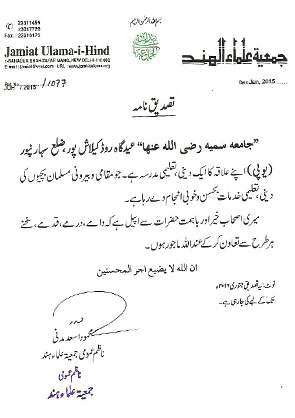 بسم اللہ الرحمن الرحیم
23311455
23317729
Fax : 23316173
Jamiat Ulama-i-Hind
1-BAHADUR SHAH ZAFAR MARG, NEW DELHI-110 002
جمعیۃ علماء الہند
1077
2015
Date Jan, 2015
تصدیق نامہ
"جامعہ سمیہ رضی اللہ عنہا" عیدگاہ روڈ کیلاش پور، ضلع سہارنپور
(یوپی) اپنے علاقہ کا ایک دینی، تعلیمی مدرسہ ہے۔ جو مقامی و بیرونی مسلمان بچیوں کی
دینی، تعلیمی خدمات بحسن و خوبی انجام دے رہا ہے۔
میری اصحاب خیر اور باہمت حضرات سے اپیل ہے کہ دامے، درمے، قدمے، سخنے
ہر طرح سے تعاون کر کے عند اللہ ماجور ہوں۔
ان اللہ لا یضیع اجر المحسنین
نوٹ: یہ تصدیق جنوری ۲۰۱۶ء
تک کے لیے کی جا رہی ہے۔
محمود اسعد مدنی
ناظم عمومی جمعیۃ علماء ہند
ناظم عمومی
جمعیۃ علماء ہند